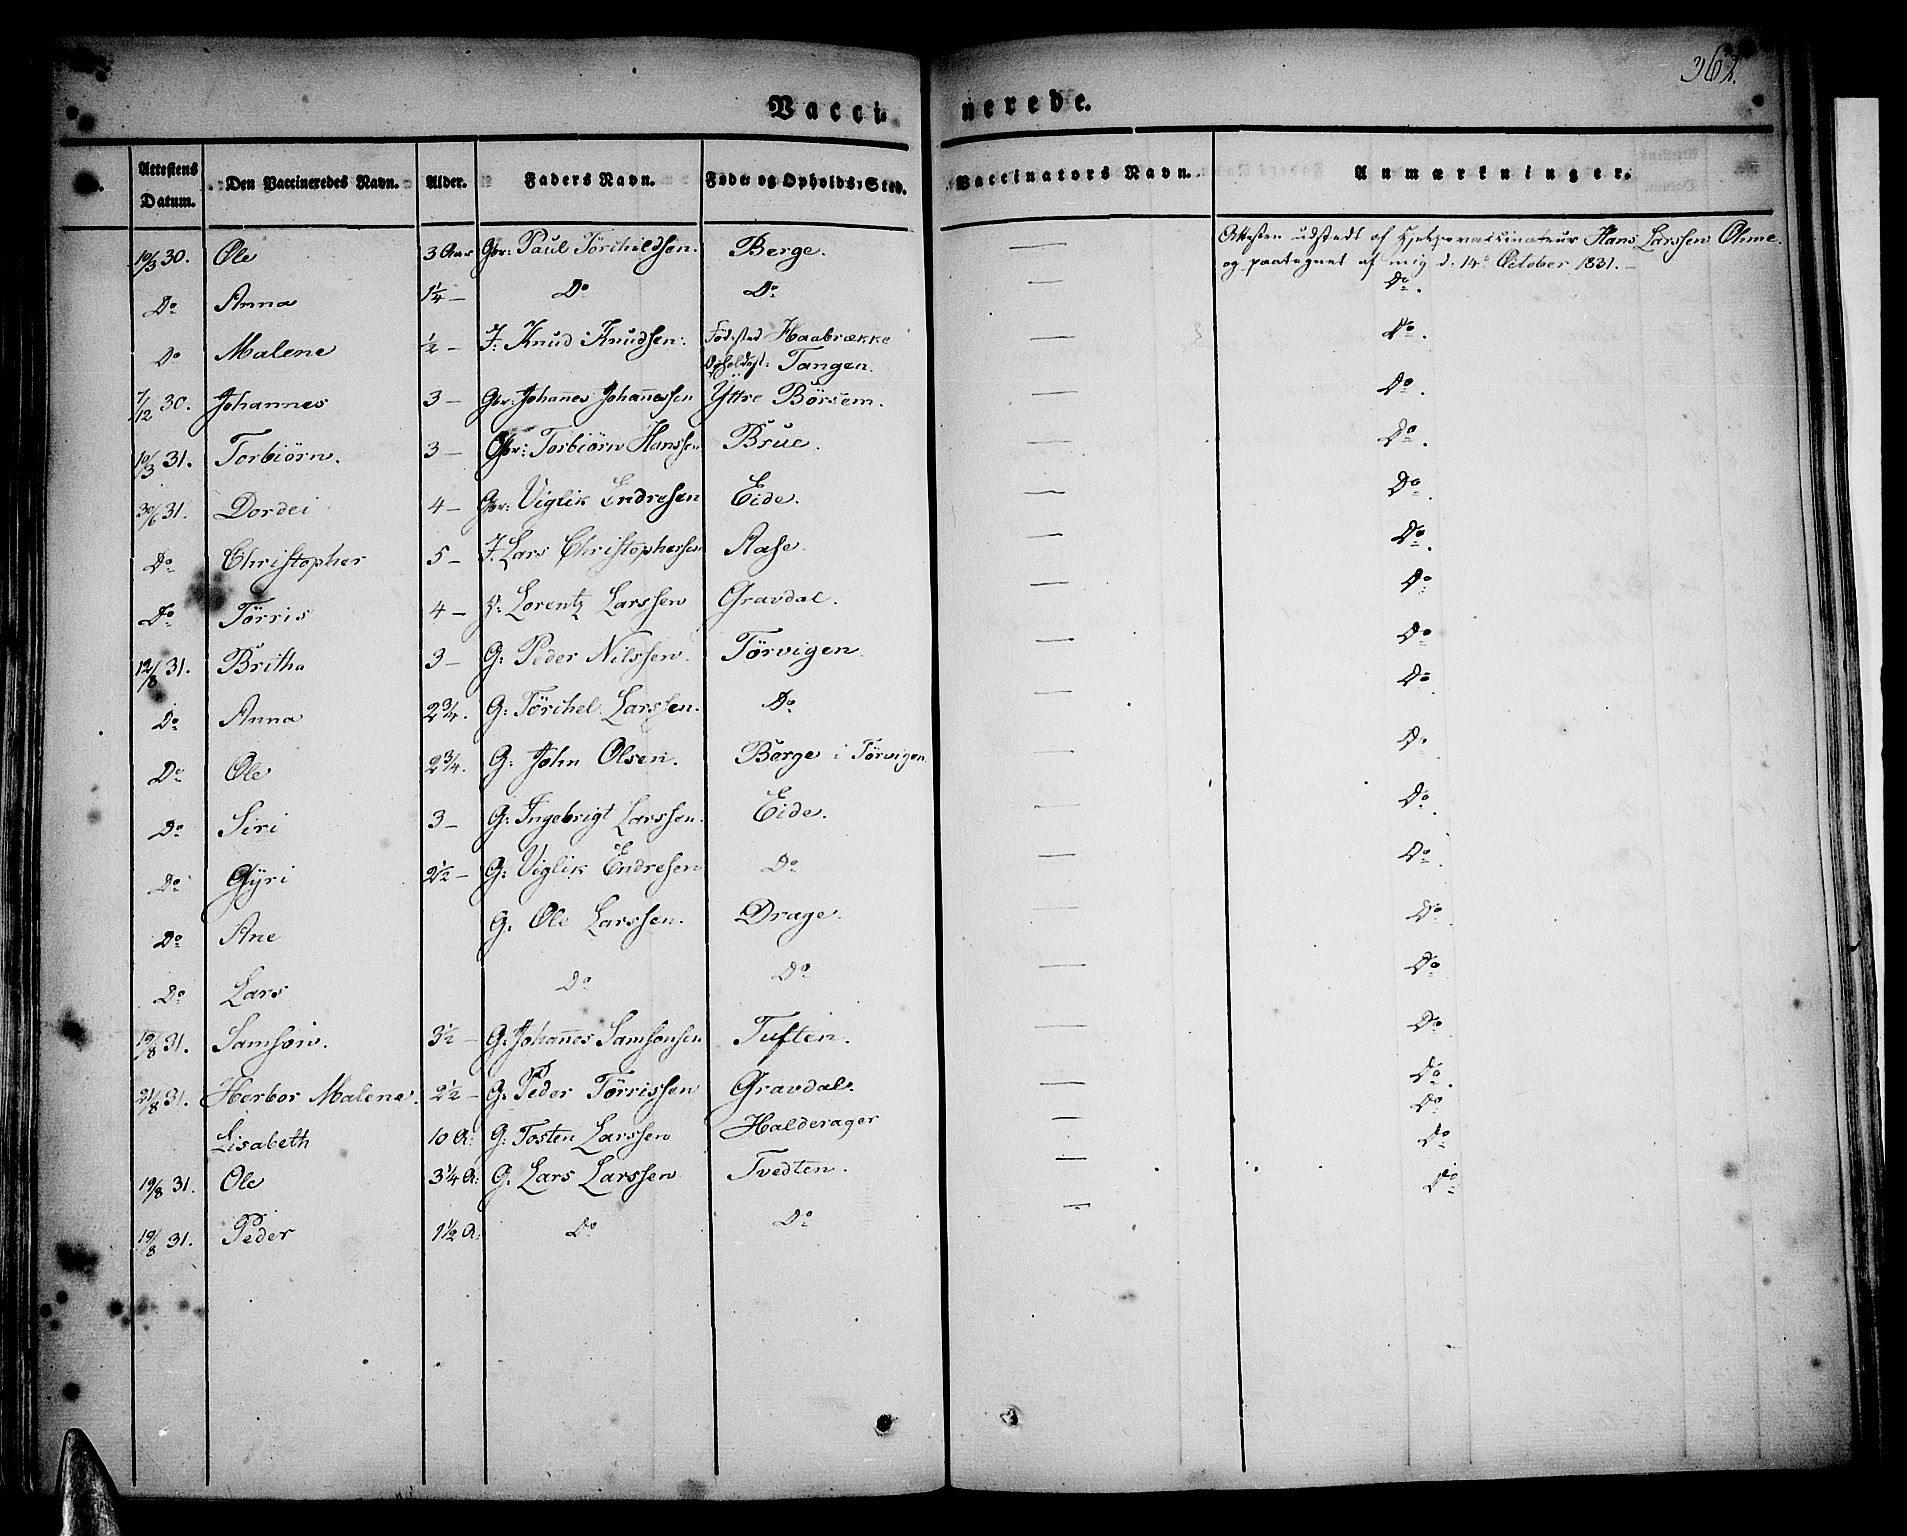 362.
Vacci- nerede.
Attestens Datum. Den Vaccineredes Navn. Alder. Faders Navn. Føde- og Opholds-Sted. Vaccinators Navn. Anmærkninger.
10/3 30. Ole 3 Aar Gbr: Paul Törchildsen. Berge. — Attesten udstedt af Hjelpevaccinateur Hans Larssen Ohme
og paategnet af mig d. 14de October 1831. —
Do Anna 1 1/4 — Do Do — Do.
Do Malene 1/2 — J: Knud Knudsen. Födested Haabrække — Do.
Opholdsst: Tangen.
7/12 30. Johannes 3 — Gbr: Johanes Johannessen Yttre Börsem. — Do.
10/3 31. Torbiörn. 3 — Gbr: Torbiörn Hanssen Brue. — Do.
30/6 31. Dordei 4 — Gbr: Viglik Endresen Eide. — Do.
Do Christopher 5 — J. Lars Christophersen Aase. — Do.
Do Törris 4 — J: Lorentz Larssen Gravdal. — Do
12/8 31. Britha 3 — G: Peder Nilssen. Törvigen. — Do
Do Anna 2 3/4. G: Törchel Larssen. Do — Do.
Do Ole 2 3/4. G: John Olsen. Berge i Törvigen — Do.
Do Siri 3 — G: Ingebrigt Larssen. Eide. — Do.
Do Gÿri 2 1/2 — G: Viglik Endresen Do — Do.
Do Ane G. Ole Larssen. Drage. — Do
Do Lars Do Do — Do
19/8 31. Samson. 3 1/2 — G: Johannes Samsonsen Tuften. — Do
21/8 31. Herbor Malene. 2 1/2 — G. Peder Törrissen Gravdal. — Do.
Lisabeth 10 A: G: Tosten Larssen Halderager — Do
19/8 31. Ole 3 1/4 A: G. Lars Larssen Tvedten. — Do
19/8 31. Peder 1 1/2 A: Do Do — Do